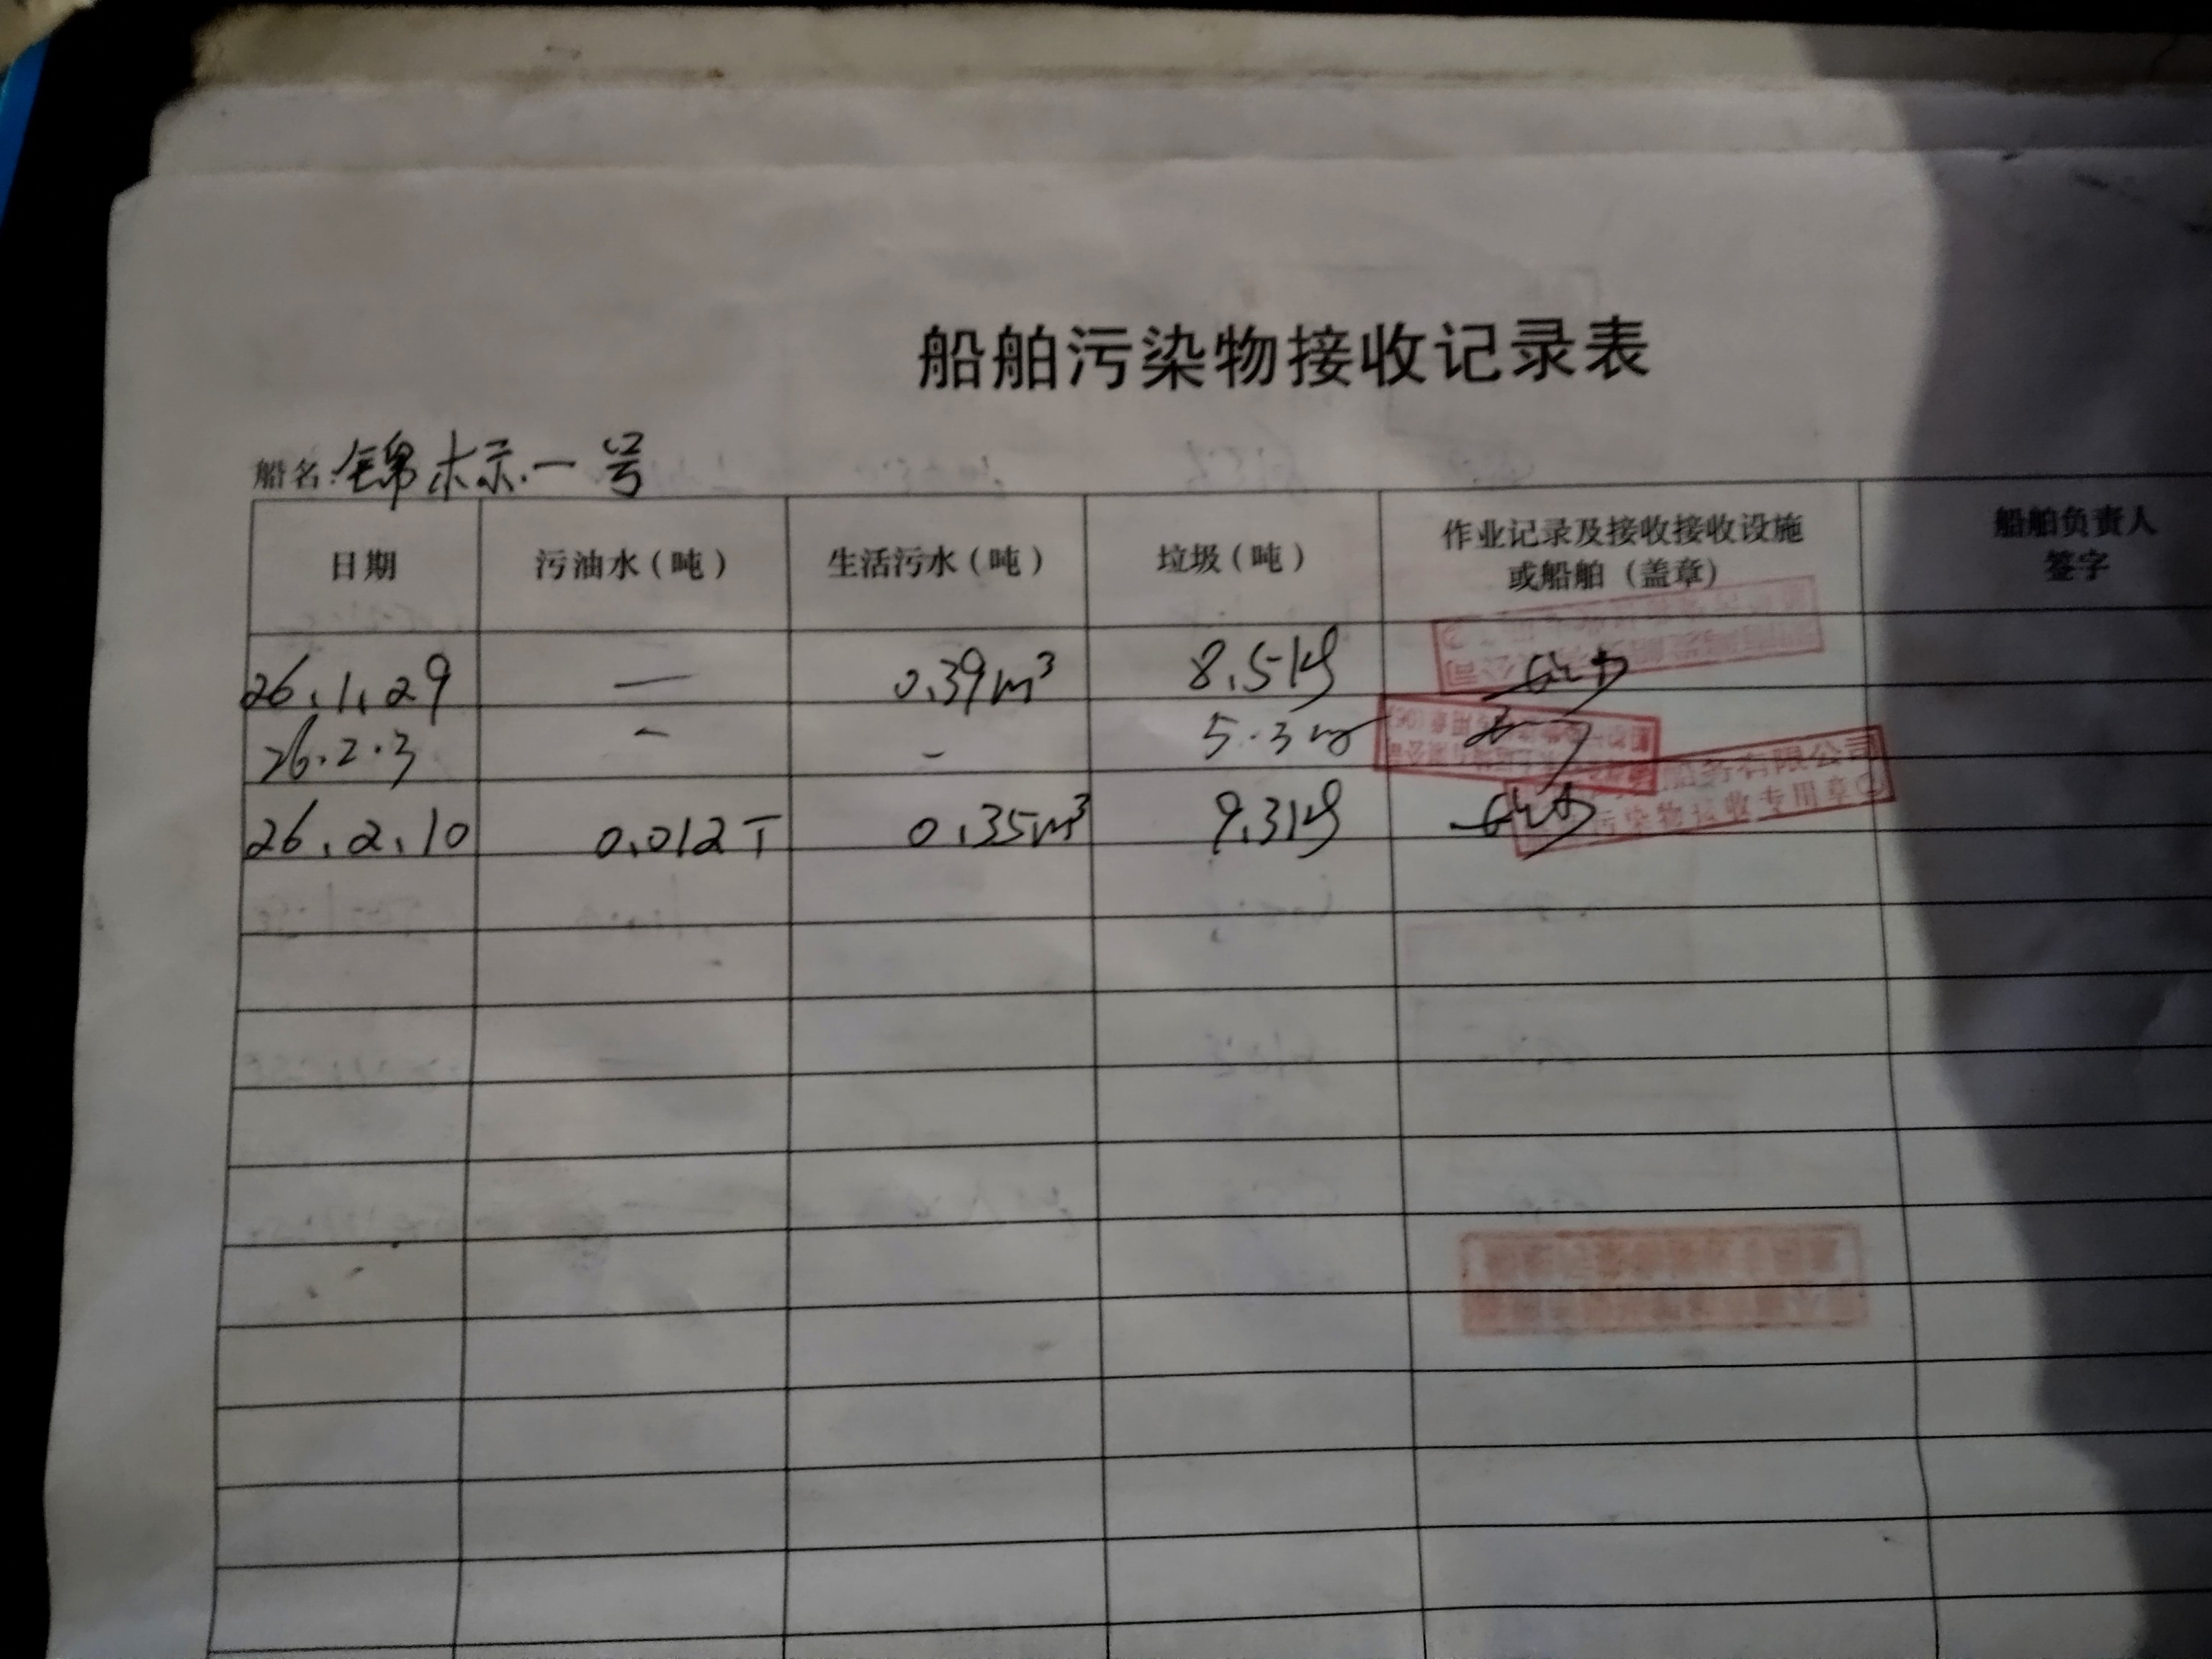 船舶污染物接收记录表
船名：锦标一号
日期 污油水（吨） 生活污水（吨） 垃圾（吨） 作业记录及接收接收设施或船舶（盖章） 船舶负责人签字
26.1.29 — 0.39m³ 8.5kg
26.2.3 - - 5.3
26.2.10 0.012T 0.35m³ 9.3kg
服务有限公司
污染物接收专用章